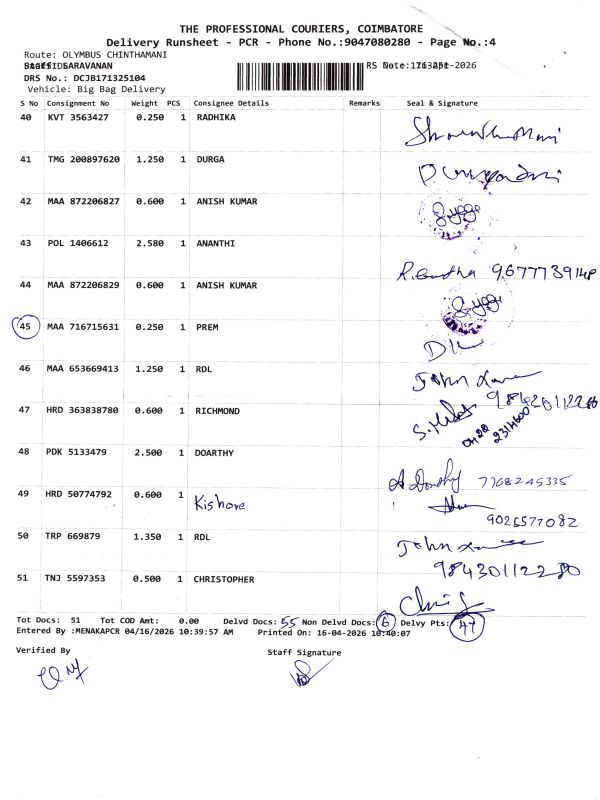 THE PROFESSIONAL COURIERS, COIMBATORE
Delivery Runsheet - PCR - Phone No.:9047080280 - Page No.:4
Route: OLYMBUS CHINTHAMANI
SARAVANAN
DRS No.: DCJB171325104
Vehicle: Big Bag Delivery
S No Consignment No Weight PCS Consignee Details Remarks Seal & Signature
40 KVT 3563427 0.250 1 RADHIKA
41 TMG 200897620 1.250 1 DURGA
42 MAA 872206827 0.600 1 ANISH KUMAR
43 POL 1406612 2.580 1 ANANTHI
44 MAA 872206829 0.600 1 ANISH KUMAR
45 MAA 716715631 0.250 1 PREM
46 MAA 653669413 1.250 1 RDL John
47 HRD 363838780 0.600 1 RICHMOND
48 PDK 5133479 2.500 1 DOARTHY 7768245335
49 HRD 50774792 0.600 1 Kishore 9026577082
50 TRP 669879 1.350 1 RDL John
51 TNJ 5597353 0.500 1 CHRISTOPHER
Tot Docs: 51 Tot COD Amt: 0.00 Delvd Docs: 55 Non Delvd Docs: 6 Delvy Pts: 47
Entered By :MENAKAPCR 04/16/2026 10:39:57 AM Printed On: 16-04-2026 10:40:07
Verified By Staff Signature